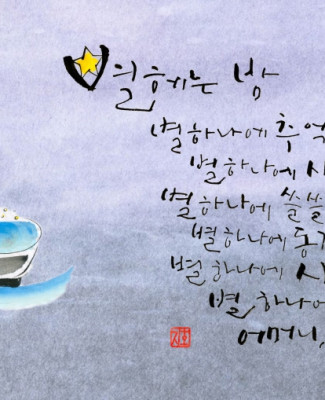 별 헤는 밤
별 하나에 추억
별 하나에
별 하나에 쓸쓸
별 하나에 동
별 하나에
별 하나에
어머니,